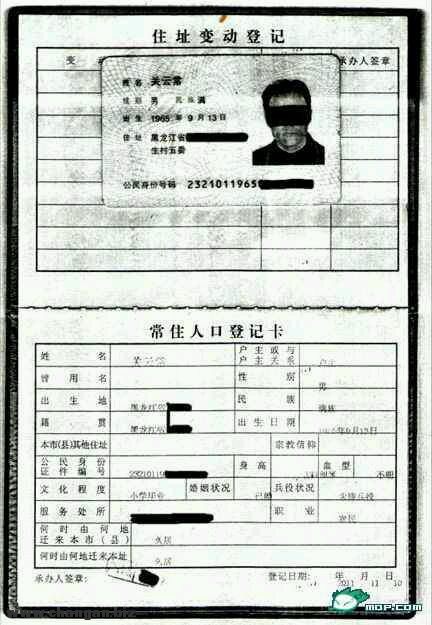 住址变动登记
承办人签章
姓名 关云常
性别 男 民族 满
出生 1965 年 9 月 13 日
住址 黑龙江省
生村五委
公民身份号码 2321011965
常住人口登记卡
姓名
户主或与
户主关系
曾用名
性别 男
出生地 黑龙江省
民族 满族
籍贯 黑龙江省
出生日期
本市(县)其他住址
宗教信仰
公民身份
证件编号 23210119
身高
血型 不明
文化程度 小学毕业
婚姻状况 已婚
兵役状况
服务处所
职业 农民
何时由何地
迁来本市(县) 久居
何时由何地迁来本址 久居
承办人签章:
登记日期: 年 月 日
2011 11 10
MOP.com